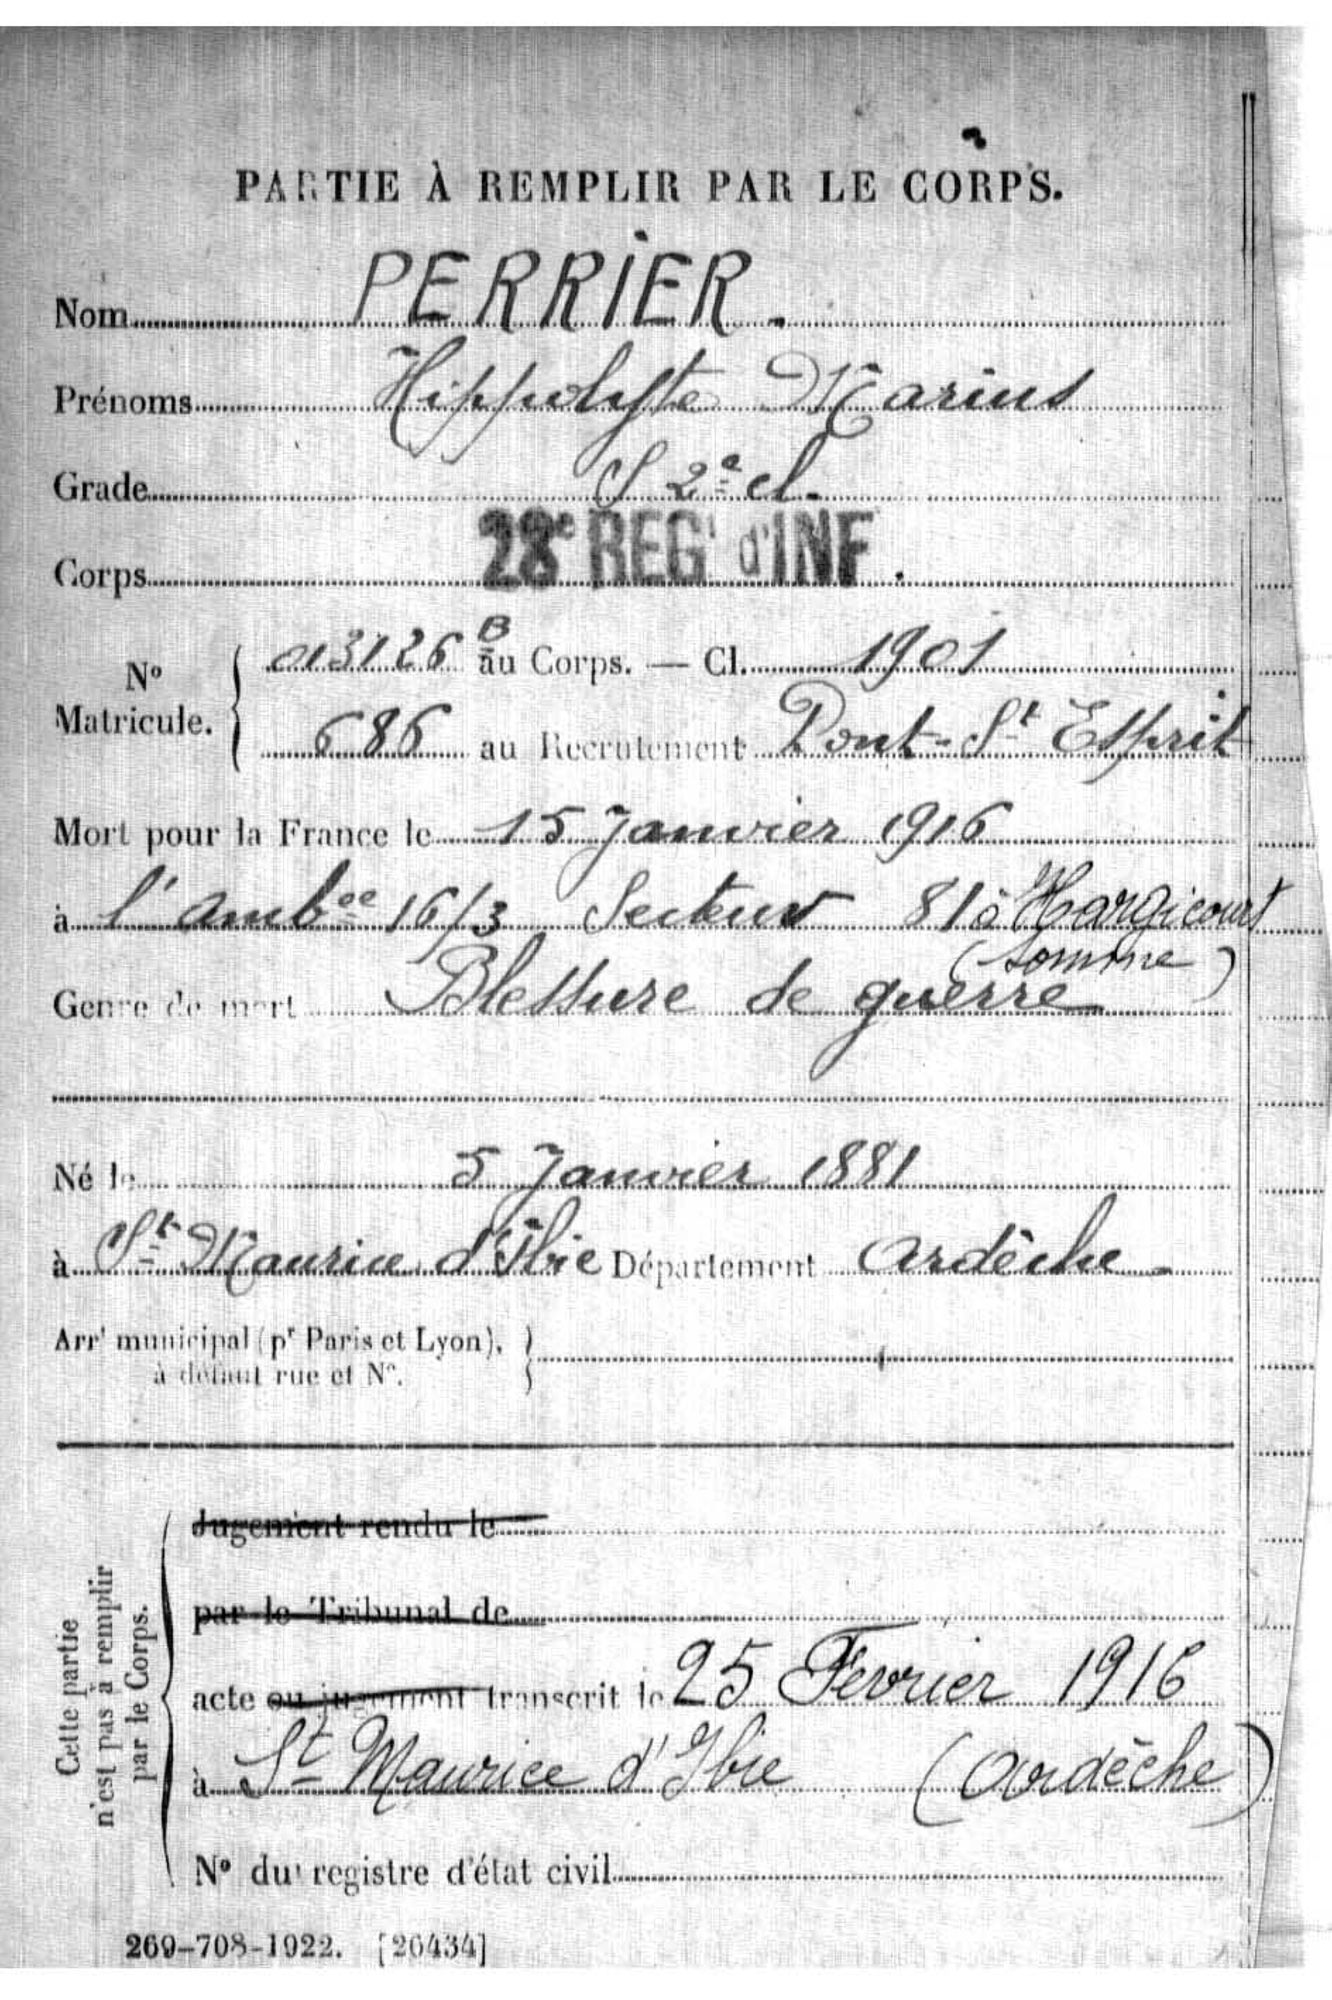 PARTIE À REMPLIR PAR LE CORPS.
Nom PERRIER.
Prénoms Hippolyte Marius
Grade S 2e cl.
Corps 28e REGt d'INF.
No Matricule. { 013126 B au Corps. — Cl. 1901
686 au Recrutement Pont-St Esprit
Mort pour la France le 15 Janvier 1916
à l'Ambce 16/3 Secteur 81 à Hargicourt
(Somme)
Genre de mort Blessure de guerre
Né le 5 Janvier 1881
à St Maurice d'Ibie Département Ardêche
Arrt municipal (pr Paris et Lyon),
à défaut rue et No.
Cette partie
n'est pas à remplir
par le Corps.
Jugement rendu le
par le Tribunal de
acte ou jugement transcrit le 25 Février 1916
à St Maurice d'Ibie (Ardêche)
No du registre d'état civil
269-708-1922. [26434]